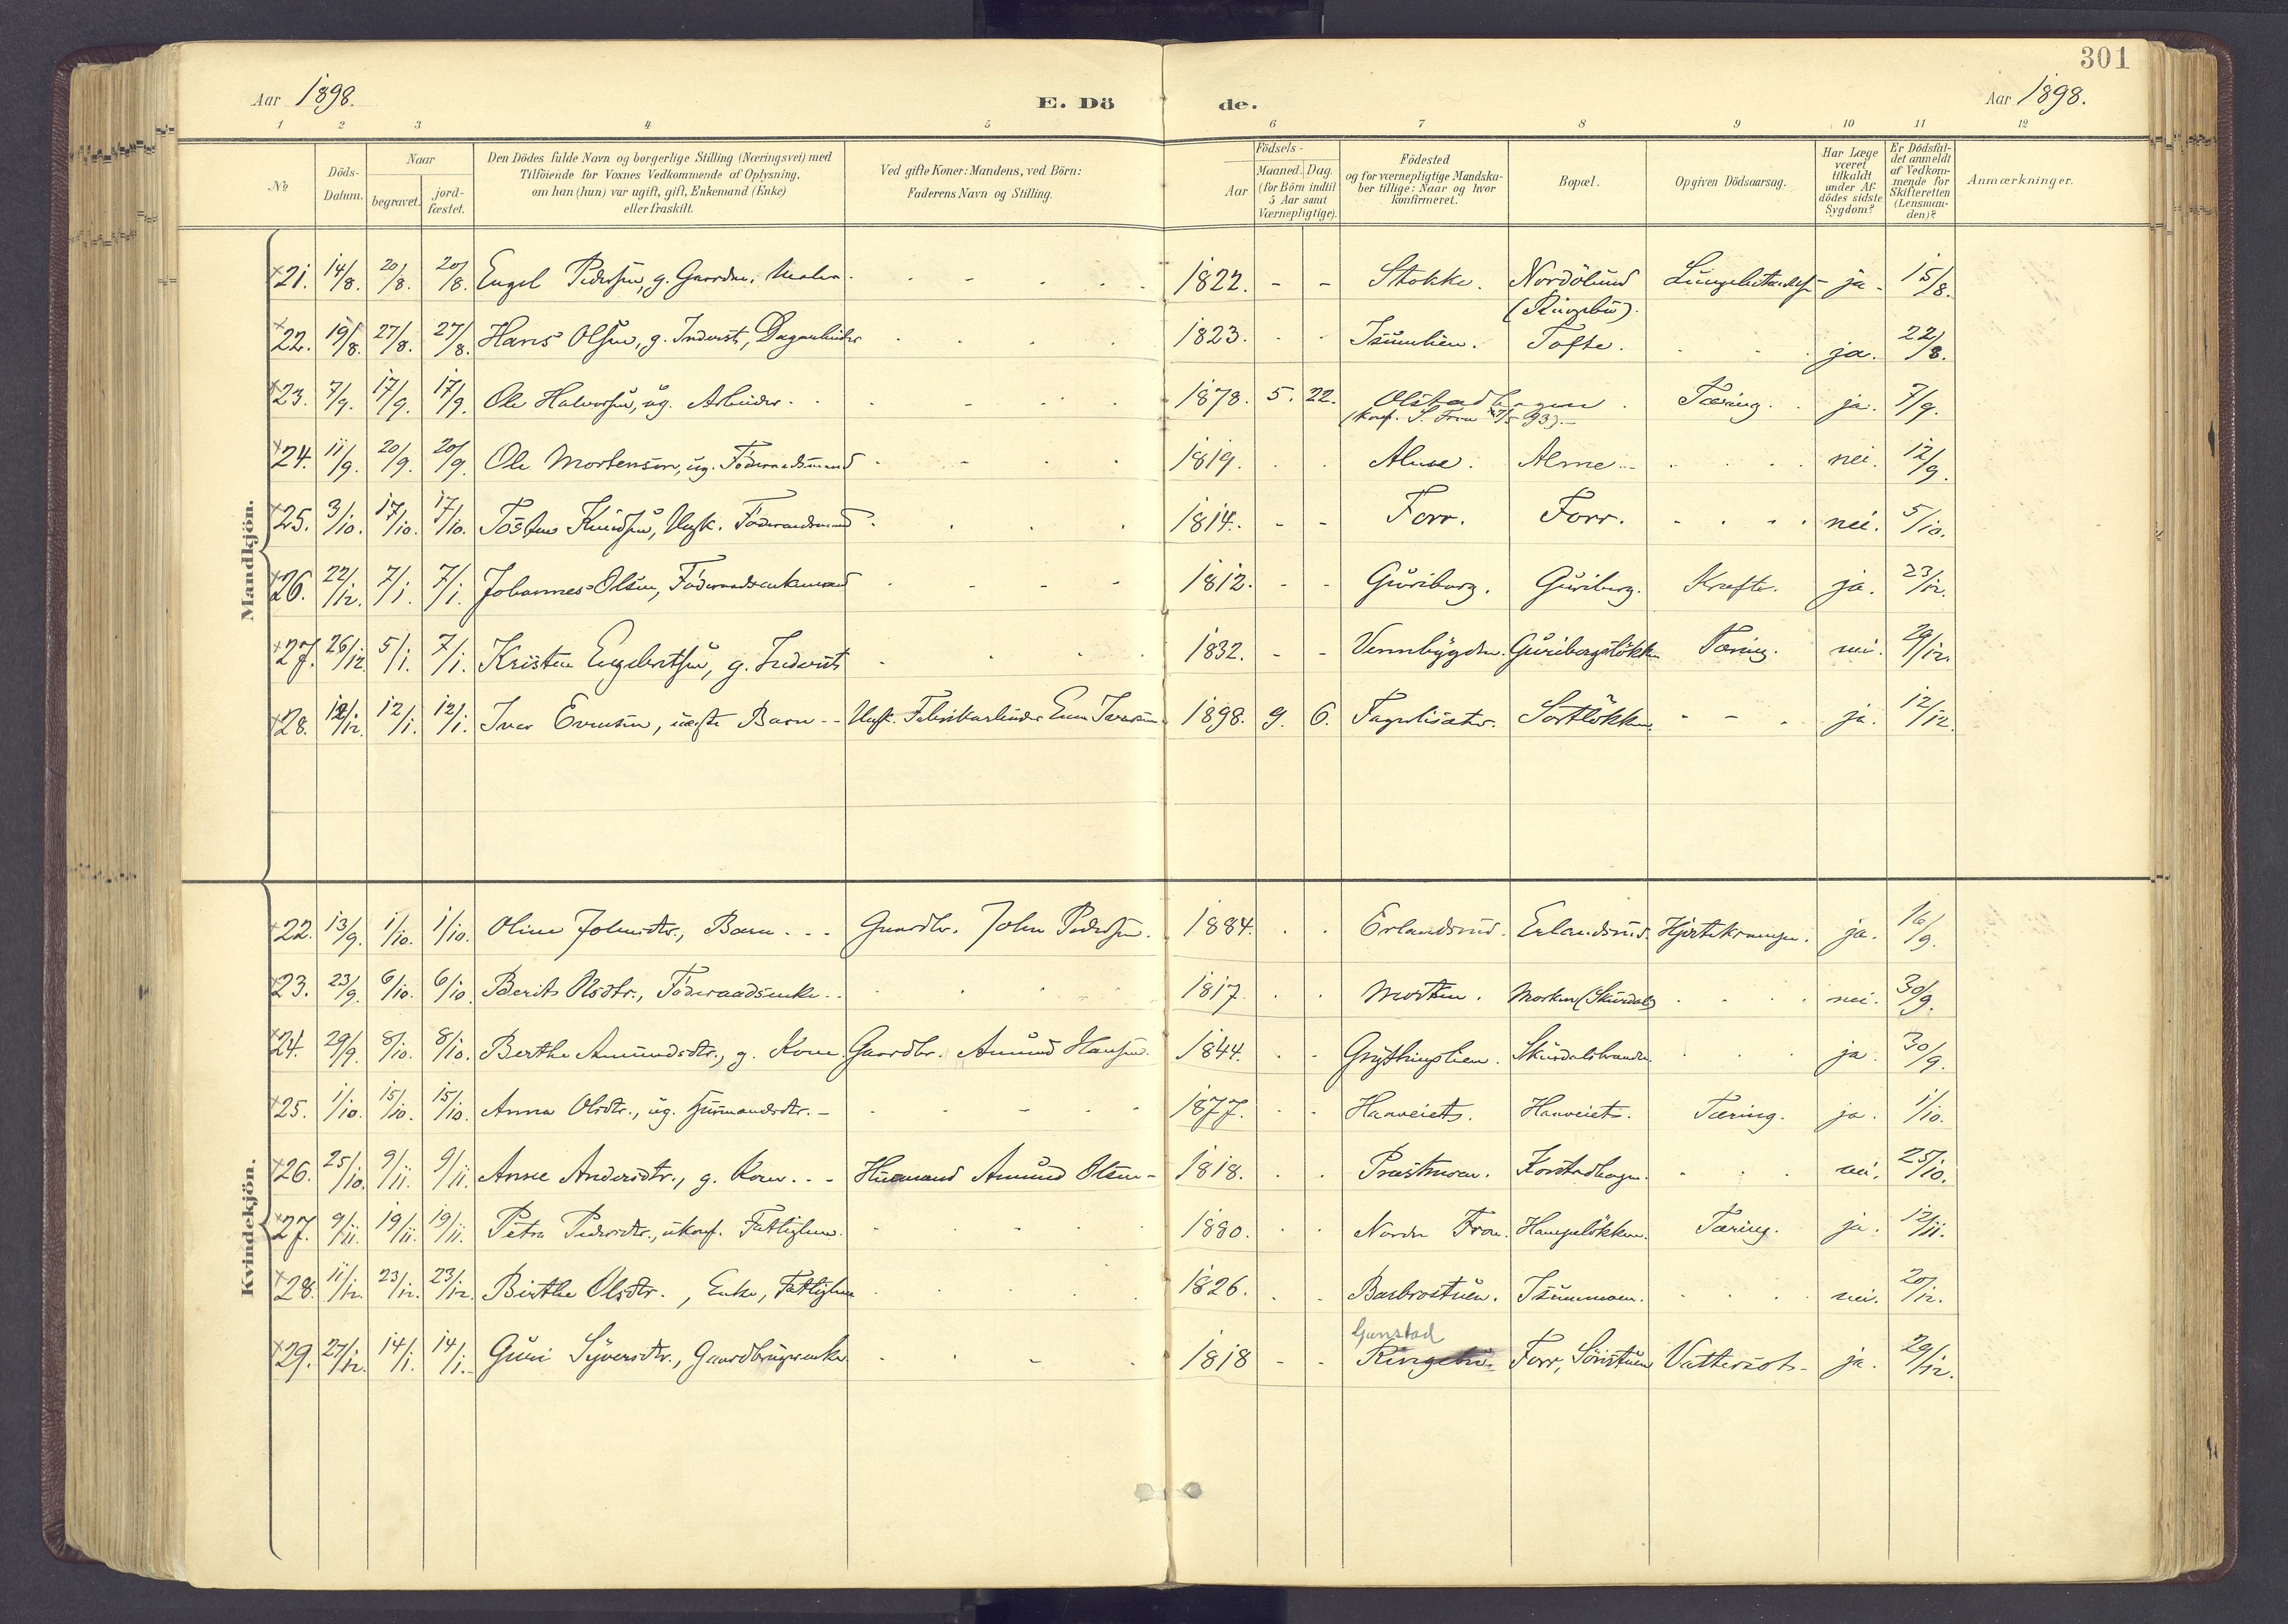 301
Aar 1898.
E. Dö de.
Aar 1898.
1 2 3 4 5 6 7 8 9 10 11 12
№
Döds-
Datum.
Naar
begravet.
jord-
fæstet.
Den Dödes fulde Navn og borgerlige Stilling (Næringsvei) med
Tilföiende for Voxnes Vedkommende af Oplysning,
om han (hun) var ugift, gift, Enkemand (Enke)
eller fraskilt.
Ved gifte Koner: Mandens, ved Börn:
Faderens Navn og Stilling.
Födsels-
Aar
Maaned. Dag.
(for Börn indtil
5 Aar samt
Værnepligtige).
Födested
og for værnepligtige Mandska-
ber tillige: Naar og hvor
konfirmeret.
Bopæl.
Opgiven Dödsaarsag.
Har Læge
været
tilkaldt
under Af-
dödes sidste
Sygdom?
Er Dödsfal-
det anmeldt
af Vedkom-
mende for
Skifteretten
(Lensman-
den)?
Anmærkninger.
Mandkjön.
21. 14/8. 20/8. 20/8. Engel Pedersen, g. Gaardm. 1822. - - Stokke. Nordölund ja. 15/8.
(Ringebu).
22. 19/8. 27/8. 27/8. Hans Olsen, g. Inderst, Dagarbeider 1823. Isumlien. Tofte. ja. 22/8.
23. 7/9. 17/9. 17/9. Ole Halvorsen, ug. Arbeider. 1878. 5. 22. Olstadhagen. Tæring. ja. 7/9.
(konf. S. Fron 93).
24. 11/9. 20/9. 20/9. Ole Mortensen, ug. Föderaadsmand 1819. Alme. Alme. nei. 12/9.
25. 3/10. 17/10. 17/10. Tosten Knudsen, Ungk. Föderaadsmand 1814. - - Forr. Forr. nei. 5/10.
26. 22/12. 7/1. 7/1. Johannes Olsen, Föderaadsenkemand 1812. - - Guriburg. Guriburg. Kræft. ja. 23/12.
27. 26/12. 5/1. 7/1. Kristen Engebretsen, g. Inderst 1832. - - Vennbygden. Tæring. nei. 29/12.
28. 12/12. 12/1. 12/1. Iver Evensen, uægte Barn Ungk. Fabrikarbeider Even Iversen 1898. 9. 6. Fagerlisæter. Sortlökken. ja. 12/12.
Kvindekjön.
22. 13/9. 1/10. 1/10. Oline Johnsdtr., Barn Gaardbr. John Pedersen. 1884. Erlandsrud. Erlandsrud. ja. 16/9.
23. 23/9. 6/10. 6/10. Berit Olsdtr., Föderaadsenke 1817. Morken. Morken (Skurdal) nei. 30/9.
24. 29/9. 8/10. 8/10. Berthe Amundsdtr., g. Kone Gaardbr. Amund Hansen. 1844. Grytingslien. ja. 30/9.
25. 1/10. 15/10. 15/10. Anna Olsdtr., ug. Husmandsdtr. 1877. Haaveiet. Haaveiet. Tæring. ja. 1/10.
26. 25/10. 9/11. 9/11. Anne Andersdtr., g. Kone Husmand Amund Olsen 1818. Præstmoen. nei. 25/10.
27. 9/11. 19/11. 19/11. Petra Pedersdtr., ukonf. Fattiglem. Nordre Fron. Tæring. ja. 12/11.
28. 11/12. 23/12. 23/12. Birthe Olsdtr., Enke, Fattiglem 1826. Barbrostuen. Isummoen. nei. 20/12.
Gunstad
29. 27/12. 14/1. 14/1. Guri Syversdtr., Gaardbrugerenke 1818 - - Ringebu. Forr, Söristuen Vattersot. ja. 29/12.